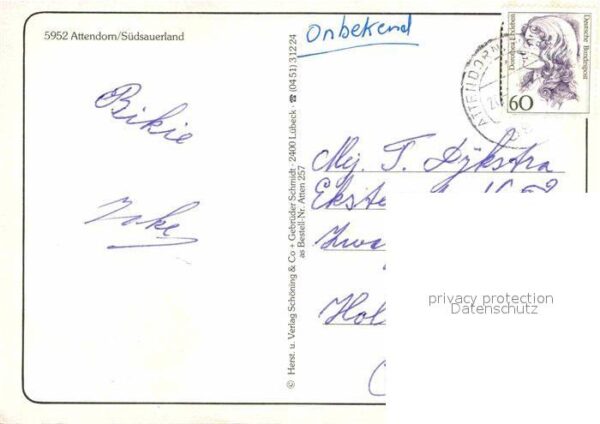 5952 Attendorn/Südsauerland
Onbekend
Deutsche Bundespost
Dorothea Erxleben
60
ATTENDORN
Bikie
Joke
© Herst. u. Verlag Schöning & Co + Gebrüder Schmidt · 2400 Lübeck · ☎ (04 51) 3 12 24
as Bestell-Nr. Atten 257
Mej. T. Dijkstra
Ekste
Zwa
Hol
privacy protection
Datenschutz